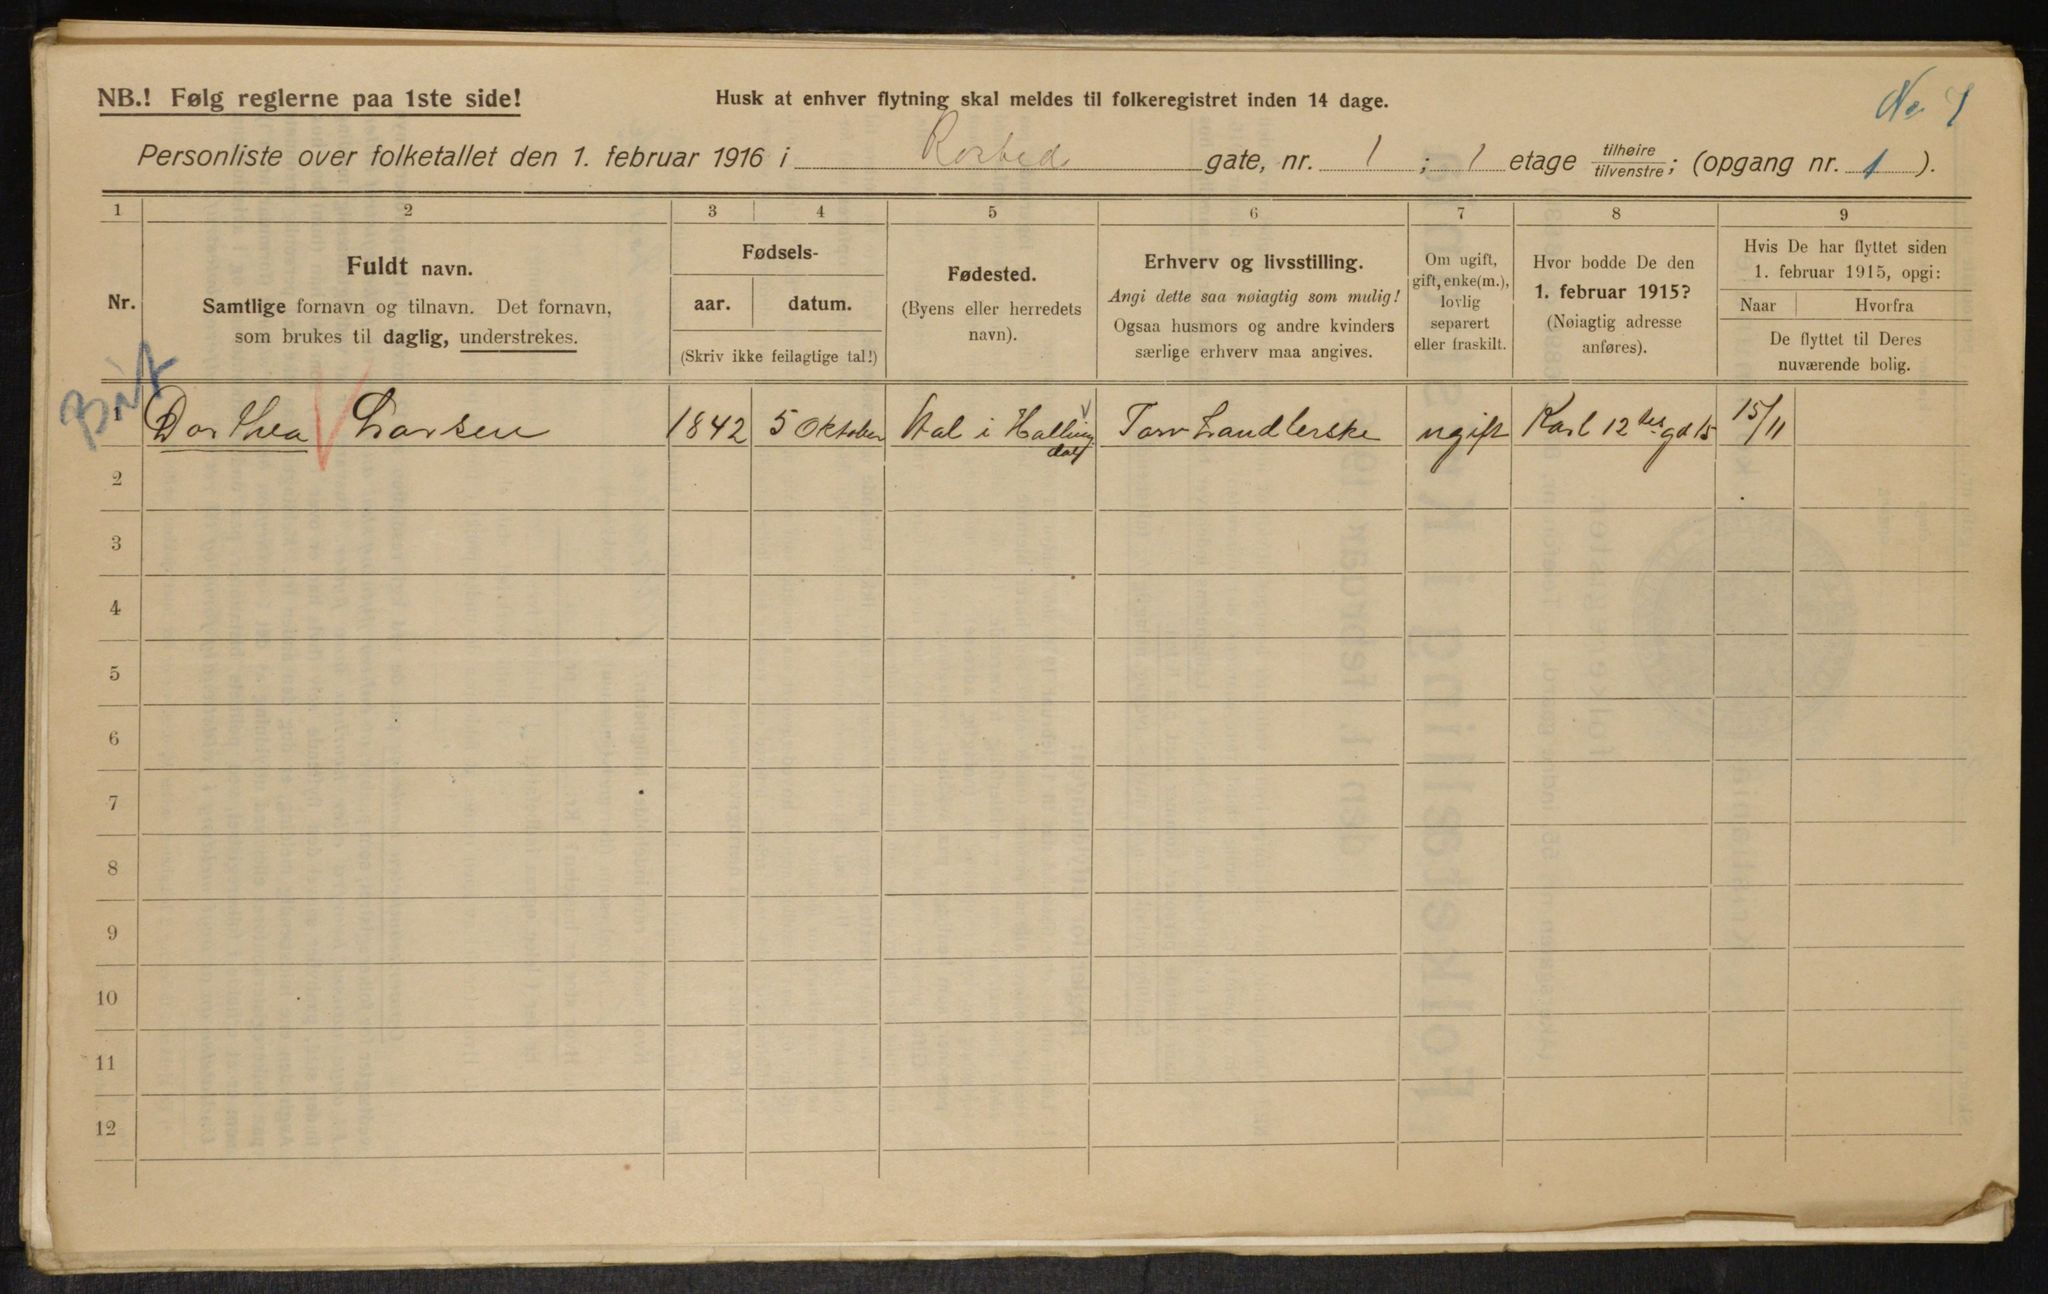 NB.! Følg reglerne paa 1ste side!
Husk at enhver flytning skal meldes til folkeregistret inden 14 dage.
No 1
Personliste over folketallet den 1. februar 1916 i Rosted gate, nr. 1 ; 1 etage tilhøire/tilvenstre; (opgang nr. 1 ).
1 2 3 4 5 6 7 8 9
Nr.
Fuldt navn.
Samtlige fornavn og tilnavn. Det fornavn,
som brukes til daglig, understrekes.
Fødsels-
aar. datum.
(Skriv ikke feilagtige tal!)
Fødested.
(Byens eller herredets
navn).
Erhverv og livsstilling.
Angi dette saa nøiagtig som mulig!
Ogsaa husmors og andre kvinders
særlige erhverv maa angives.
Om ugift,
gift, enke(m.),
lovlig
separert
eller fraskilt.
Hvor bodde De den
1. februar 1915?
(Nøiagtig adresse
anføres).
Hvis De har flyttet siden
1. februar 1915, opgi:
Naar Hvorfra
De flyttet til Deres
nuværende bolig.
1 Dorthea Larsen 1842 5 Oktober Aal i Hallingdal Torv Handlerske ugift Karl 12tes gd 15 15/11
2
3
4
5
6
7
8
9
10
11
12